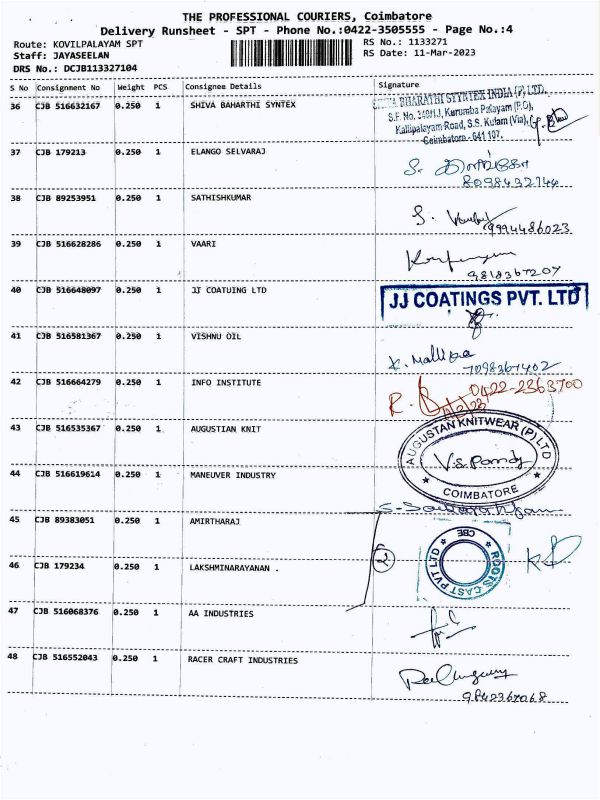 THE PROFESSIONAL COURIERS, Coimbatore
Delivery Runsheet - SPT - Phone No.:0422-3505555 - Page No.:4
Route: KOVILPALAYAM SPT
RS No.: 1133271
Staff: JAYASEELAN
RS Date: 11-Mar-2023
DRS No.: DCJB113327104
S No Consignment No Weight PCS Consignee Details Signature
36 CJB 516632167 0.250 1 SHIVA BAHARTHI SYNTEX
BHARATHI SYNTEX INDIA (P) LTD.
S.F. No. 349/1J, Kurumba Palayam (P.O),
Kallipalayam Road, S.S. Kulam (Via),
Coimbatore - 641 107.
37 CJB 179213 0.250 1 ELANGO SELVARAJ
8098432744
38 CJB 89253951 0.250 1 SATHISHKUMAR
9994486023
39 CJB 516628286 0.250 1 VAARI
9818367207
40 CJB 516648097 0.250 1 JJ COATUING LTD
JJ COATINGS PVT. LTD
41 CJB 516581367 0.250 1 VISHNU OIL
K. Mallika
7098367402
42 CJB 516664279 0.250 1 INFO INSTITUTE
0422-2363700
43 CJB 516535367 0.250 1 AUGUSTIAN KNIT
AUGUSTAN KNITWEAR (P) LTD
V.S. Pandy
COIMBATORE
44 CJB 516619614 0.250 1 MANEUVER INDUSTRY
45 CJB 89383051 0.250 1 AMIRTHARAJ
ROOTS CAST PVT LTD
CBE
2
46 CJB 179234 0.250 1 LAKSHMINARAYANAN .
47 CJB 516068376 0.250 1 AA INDUSTRIES
48 CJB 516552043 0.250 1 RACER CRAFT INDUSTRIES
9842367068